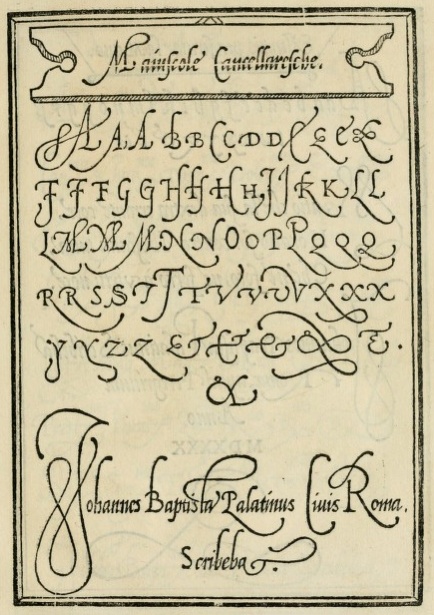 Maiuscole Cancellaresche.
A A A B B C C D D E E E E
F F F G G H H H H I J K K L L
L M M M N N O O P P Q Q Q
R R S S T T T V V V V X X X
Y Y Z Z & & & & & &.
&
Iohannes Baptista Palatinus Civis Roma.
Scribebat.